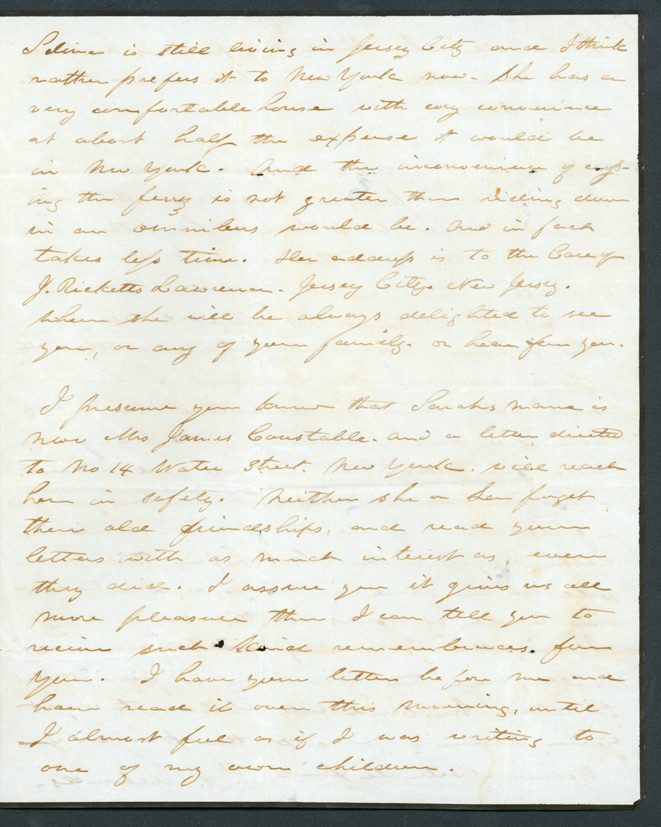 Selina is still living in Jersey City and I think
rather prefers it to New York now. She has a
very comfortable house with evry convenience
at about half the expense it would be
in New York. And the inconvenience of cross
ing the ferry is not greater than riding down
in an omnibus would be. And in fact
takes less time. Her address is to the Care of
J. Ricketts Lawrence. Jersey City. New Jersey.
where she will be always delighted to see
you, or any of your family. or hear from you.
I presume you know that Sarahs name is
now Mrs James Constable. and a letter directed
to No 14 Water Street. New York. will reach
her in safety. Neither she or Lena forget
their old friendships, and read your
letters with as much interest as ever
they did. I assure you it gives us all
more pleasure than I can tell you to
receive such kind remembrances. from
you. I have your letter before me and
have read it over this morning, until
I almost feel as if I was writing to
one of my own children.